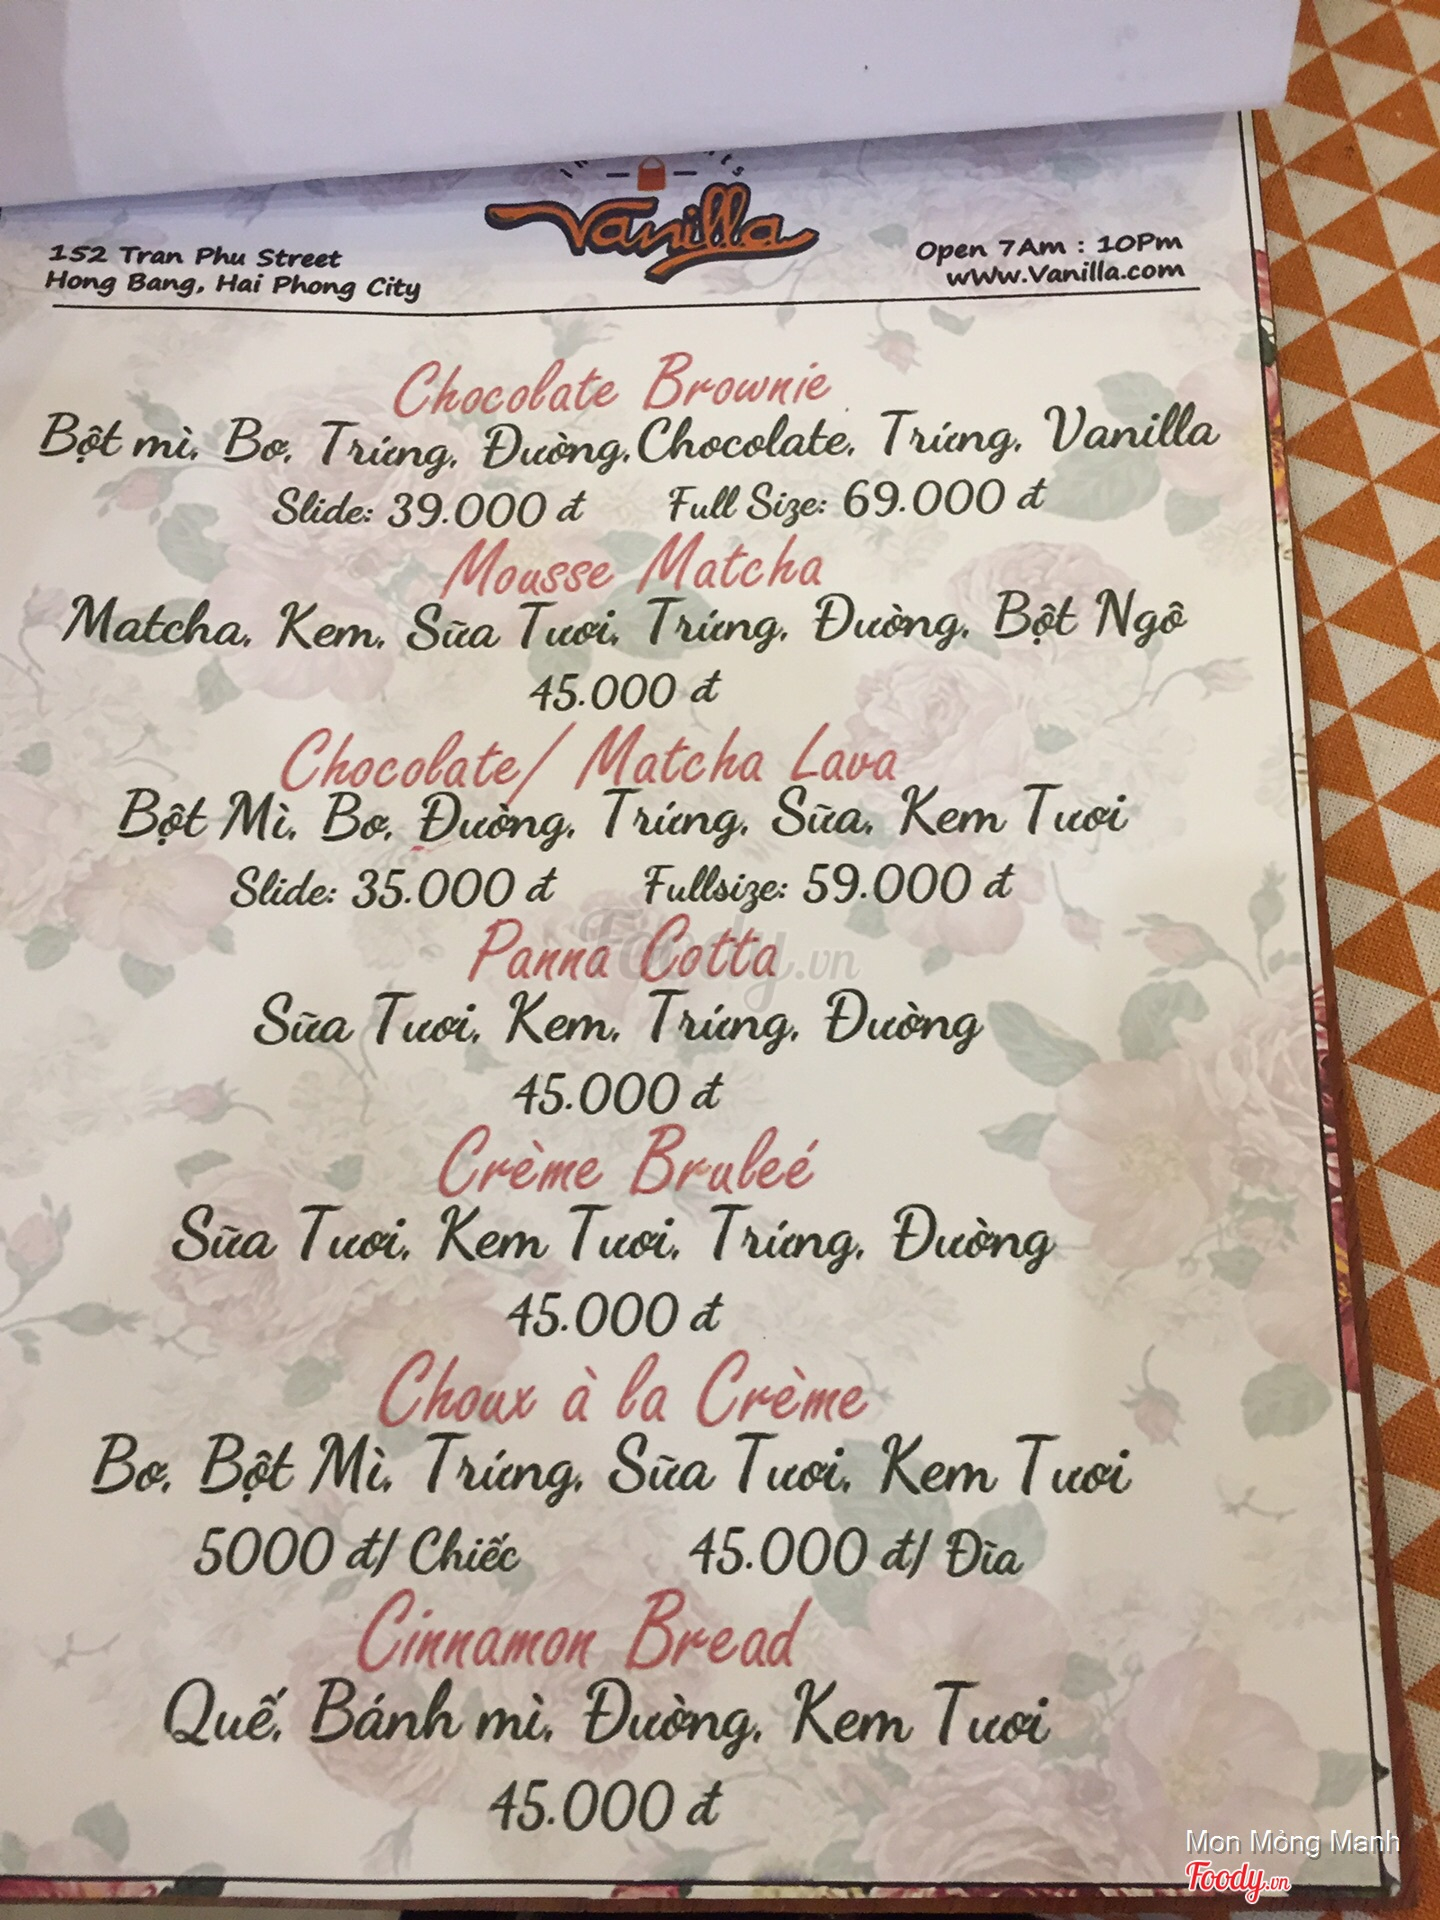 Vanilla
152 Tran Phu Street
Hong Bang, Hai Phong City
Open 7Am : 10Pm
www.Vanilla.com
Chocolate Brownie
Bột mì, Bơ, Trứng, Đường,Chocolate, Trứng, Vanilla
Slide: 39.000 đ Full Size: 69.000 đ
Mousse Matcha
Matcha, Kem, Sữa Tươi, Trứng, Đường, Bột Ngô
45.000 đ
Chocolate/ Matcha Lava
Bột Mì, Bơ, Đường, Trứng, Sữa, Kem Tươi
Slide: 35.000 đ Fullsize: 59.000 đ
Panna Cotta
Foody.vn
Sữa Tươi, Kem, Trứng, Đường
45.000 đ
Crème Bruleé
Sữa Tươi, Kem Tươi, Trứng, Đường
45.000 đ
Choux à la Crème
Bơ, Bột Mì, Trứng, Sữa Tươi, Kem Tươi
5000 đ/ Chiếc 45.000 đ/ Đĩa
Cinnamon Bread
Quế, Bánh mì, Đường, Kem Tươi
45.000 đ
Mon Mỏng Manh
Foody.vn